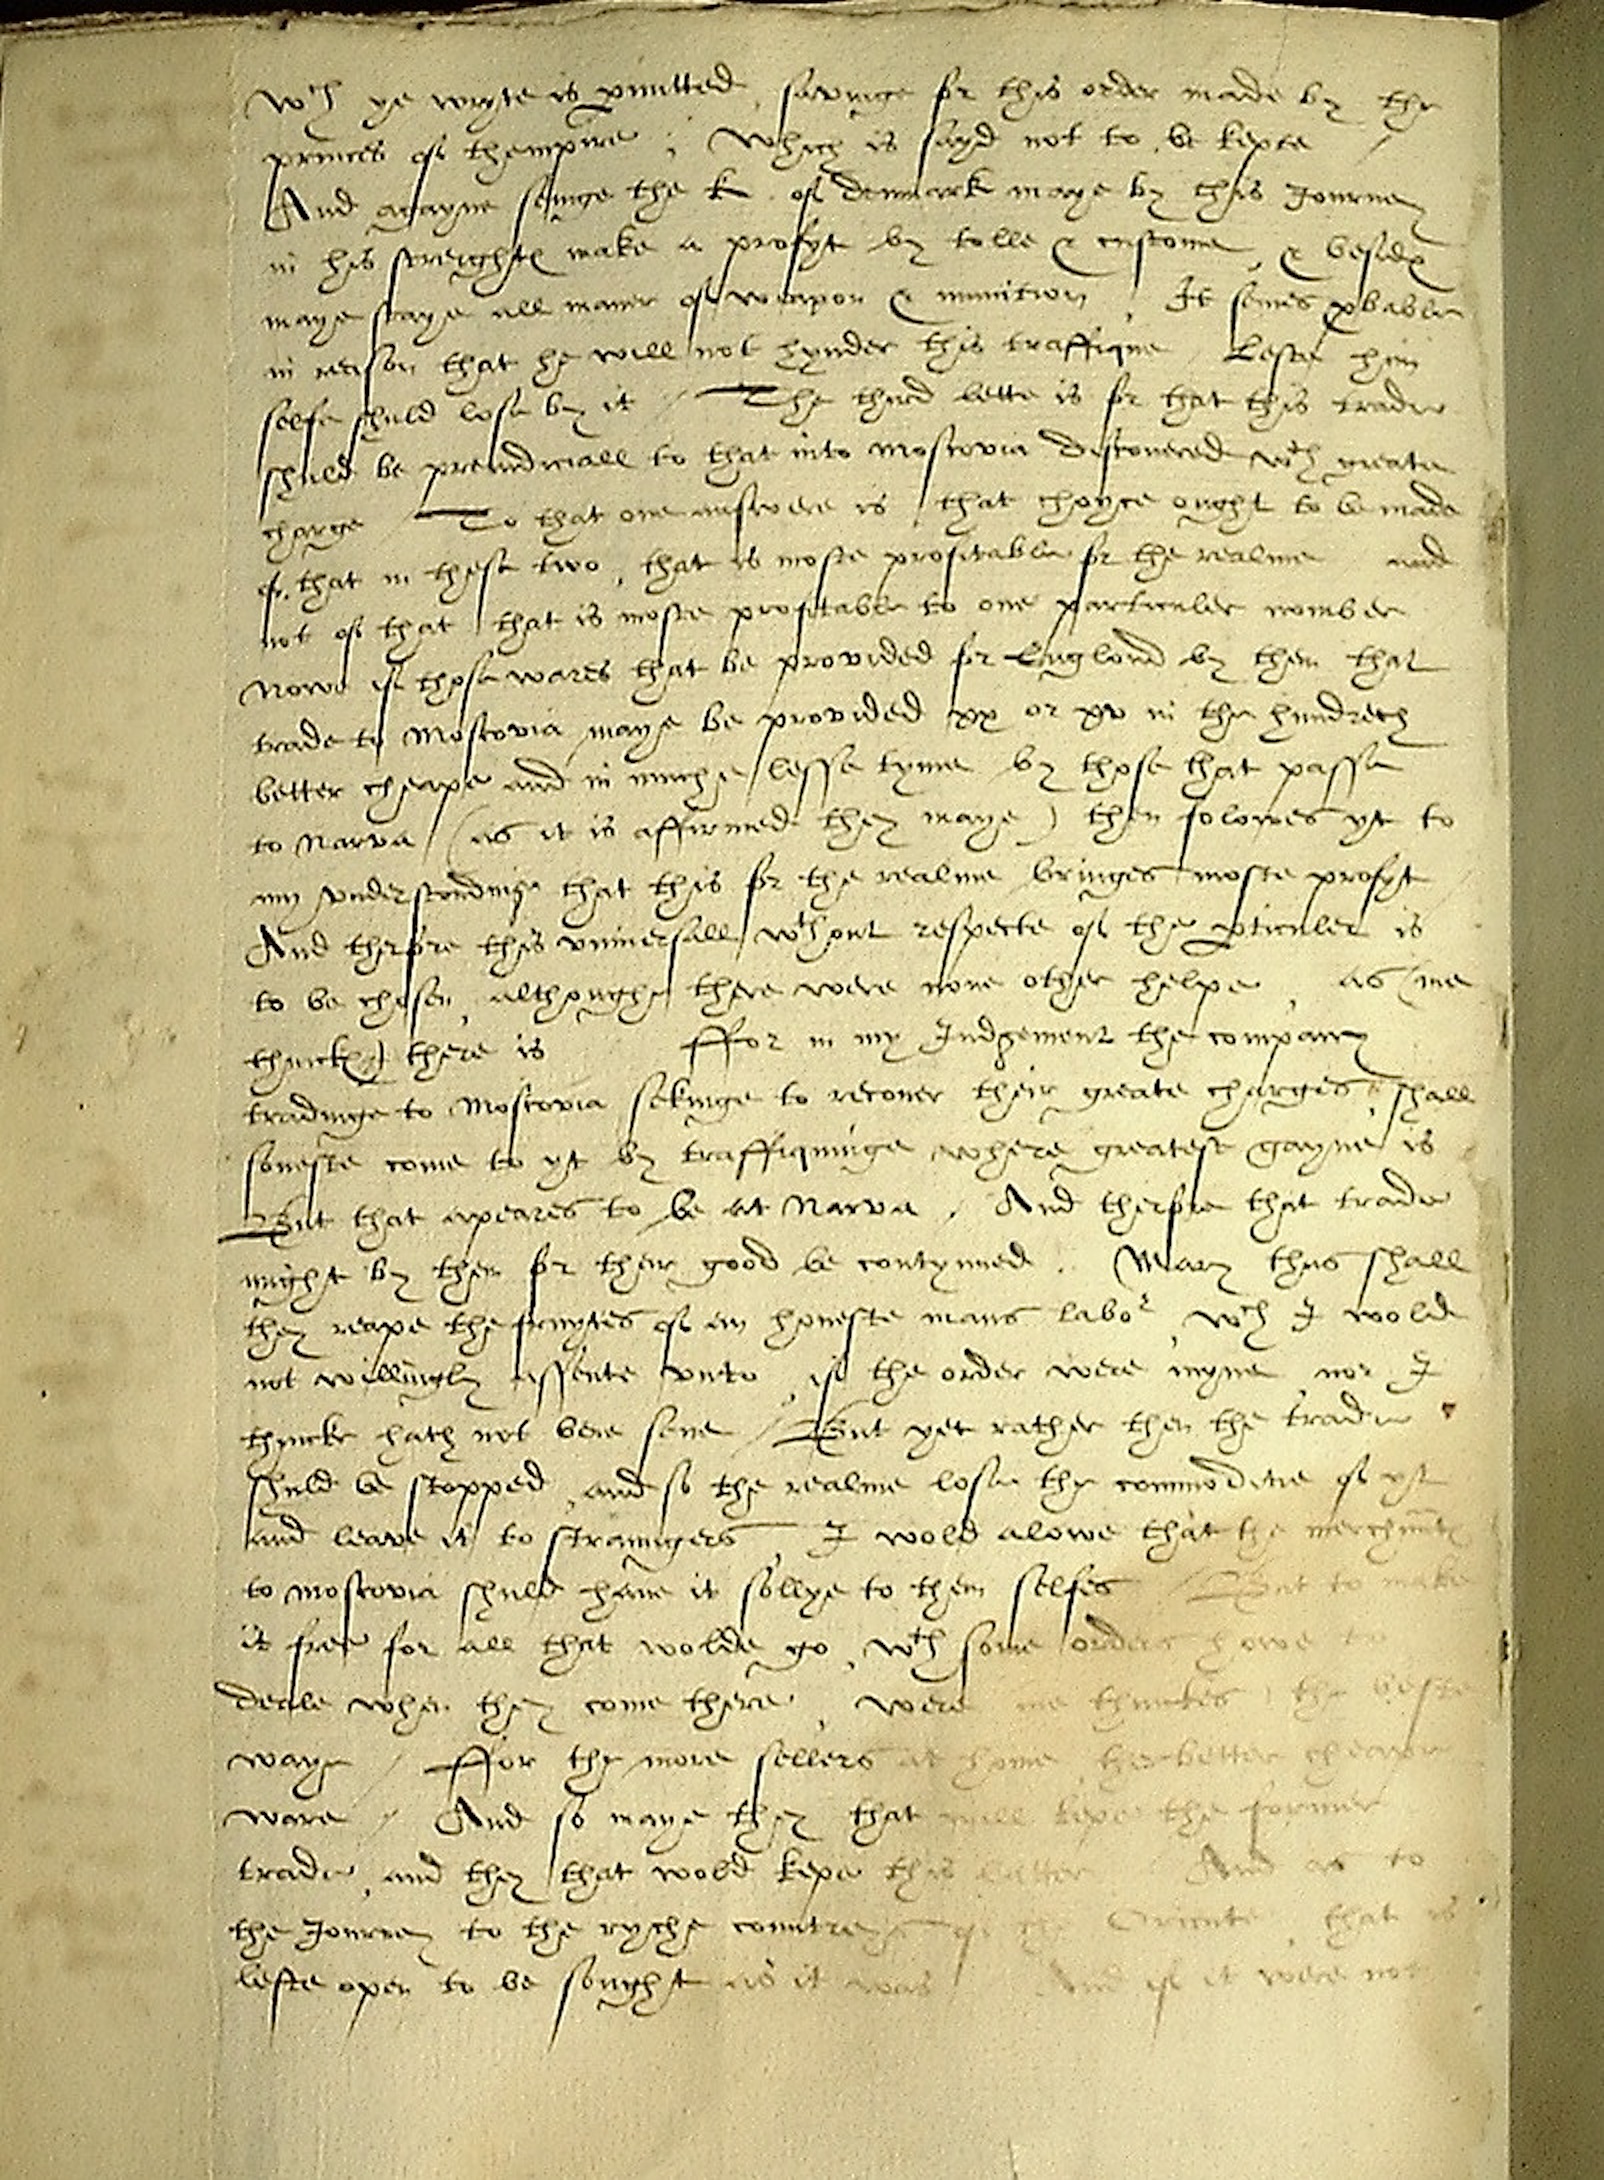 wth ye wryte is pmitted, savinge for this order made by the
princes of thempire; Which is sayd not to be kepte /
And agayne seinge the K. of Denmark maye by this Journey
in his streightes make a profyt by tolle & custome, & besides
maye staye all maner of weapon & munition, It semes pbable
in reason that he will not hynder this traffique Leste him
selfe shuld lose by it / The third lette is for that this trade
shuld be preiudiciall to that into Moscovia discouered wth greate
charge / To that one answere is that choyce ought to be made
of that in these two, that is moste profitable for the realme and
not of that that is moste profitable to one particuler nomber
Nowe if those wares that be provided for Englond by them that
trade to Moscovia maye be provided xx or xv in the hundreth
better cheape and in muche lesse tyme by those that passe
to Narva (as it is affirmed they maye) then folowes yt to
my understondinge that this for the realme bringes moste profyt /
And therfore this vniuersall wthout respecte of the pticuler is
to be chosen, althoughe there were none other helpe, as (me
thinckes) there is ffor in my Judgement the company
tradinge to Moscovia sekinge to recouer their greate charges, shall
soneste come to yt by traffiquinge where greatest gayne is
But that apeares to be at Narva, And therfore that trade
might by them for their good be contynued. Mary thus shall
they reape the fruytes of an honeste mans labor, wch I wold
not willingly assente vnto, if the order were myne, nor I
thincke hath not bene sene / But yet rather then the trade
shuld be stopped, and so the realme lose the commoditie of yt
and leave it to straungers, I wold alowe that the merchants
to Moscovia shuld haue it sollye to them selfes / But to make
it free for all that wolde go, wth some orders howe to
deale when they come there, were me thinkes the beste
waye / ffor the more sellers at home, the better cheape
ware / And so maye they that will kepe the former
trade, and they that wold kepe this latter And as to
the Journey to the ryche countreys of the Oriente, that is
lefte open to be sought as it was And if it were not